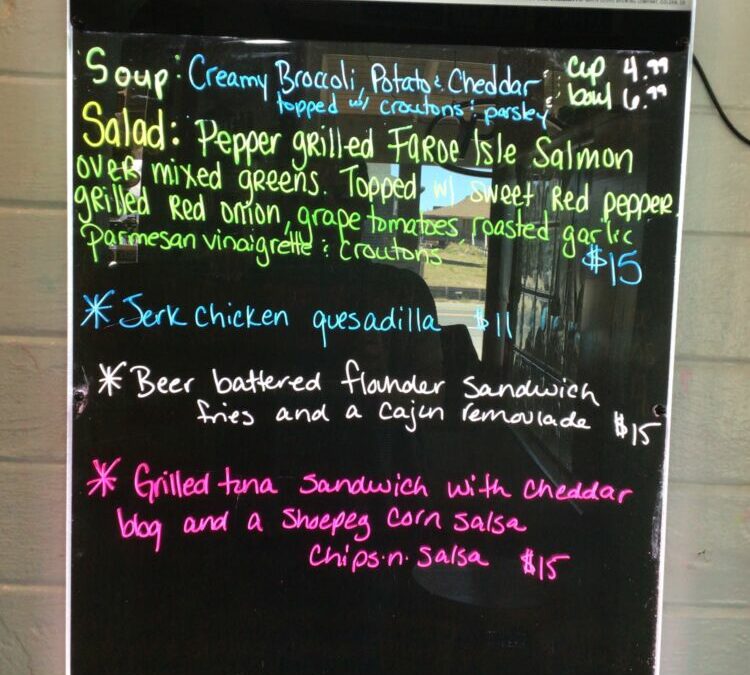 Soup: Creamy Broccoli, Potato & Cheddar : cup 4.99
topped w/ croutons & parsley : bowl 6.99
Salad: Pepper grilled Faroe Isle Salmon
over mixed greens. Topped w/ sweet Red pepper,
grilled Red onion, grape tomatoes roasted garlic
Parmesan vinaigrette & Croutons $15
* Jerk chicken quesadilla $11
* Beer battered flounder sandwich
fries and a cajun remoulade $15
* Grilled tuna sandwich with cheddar
blog and a Shoepeg Corn Salsa
Chips.n.Salsa $15